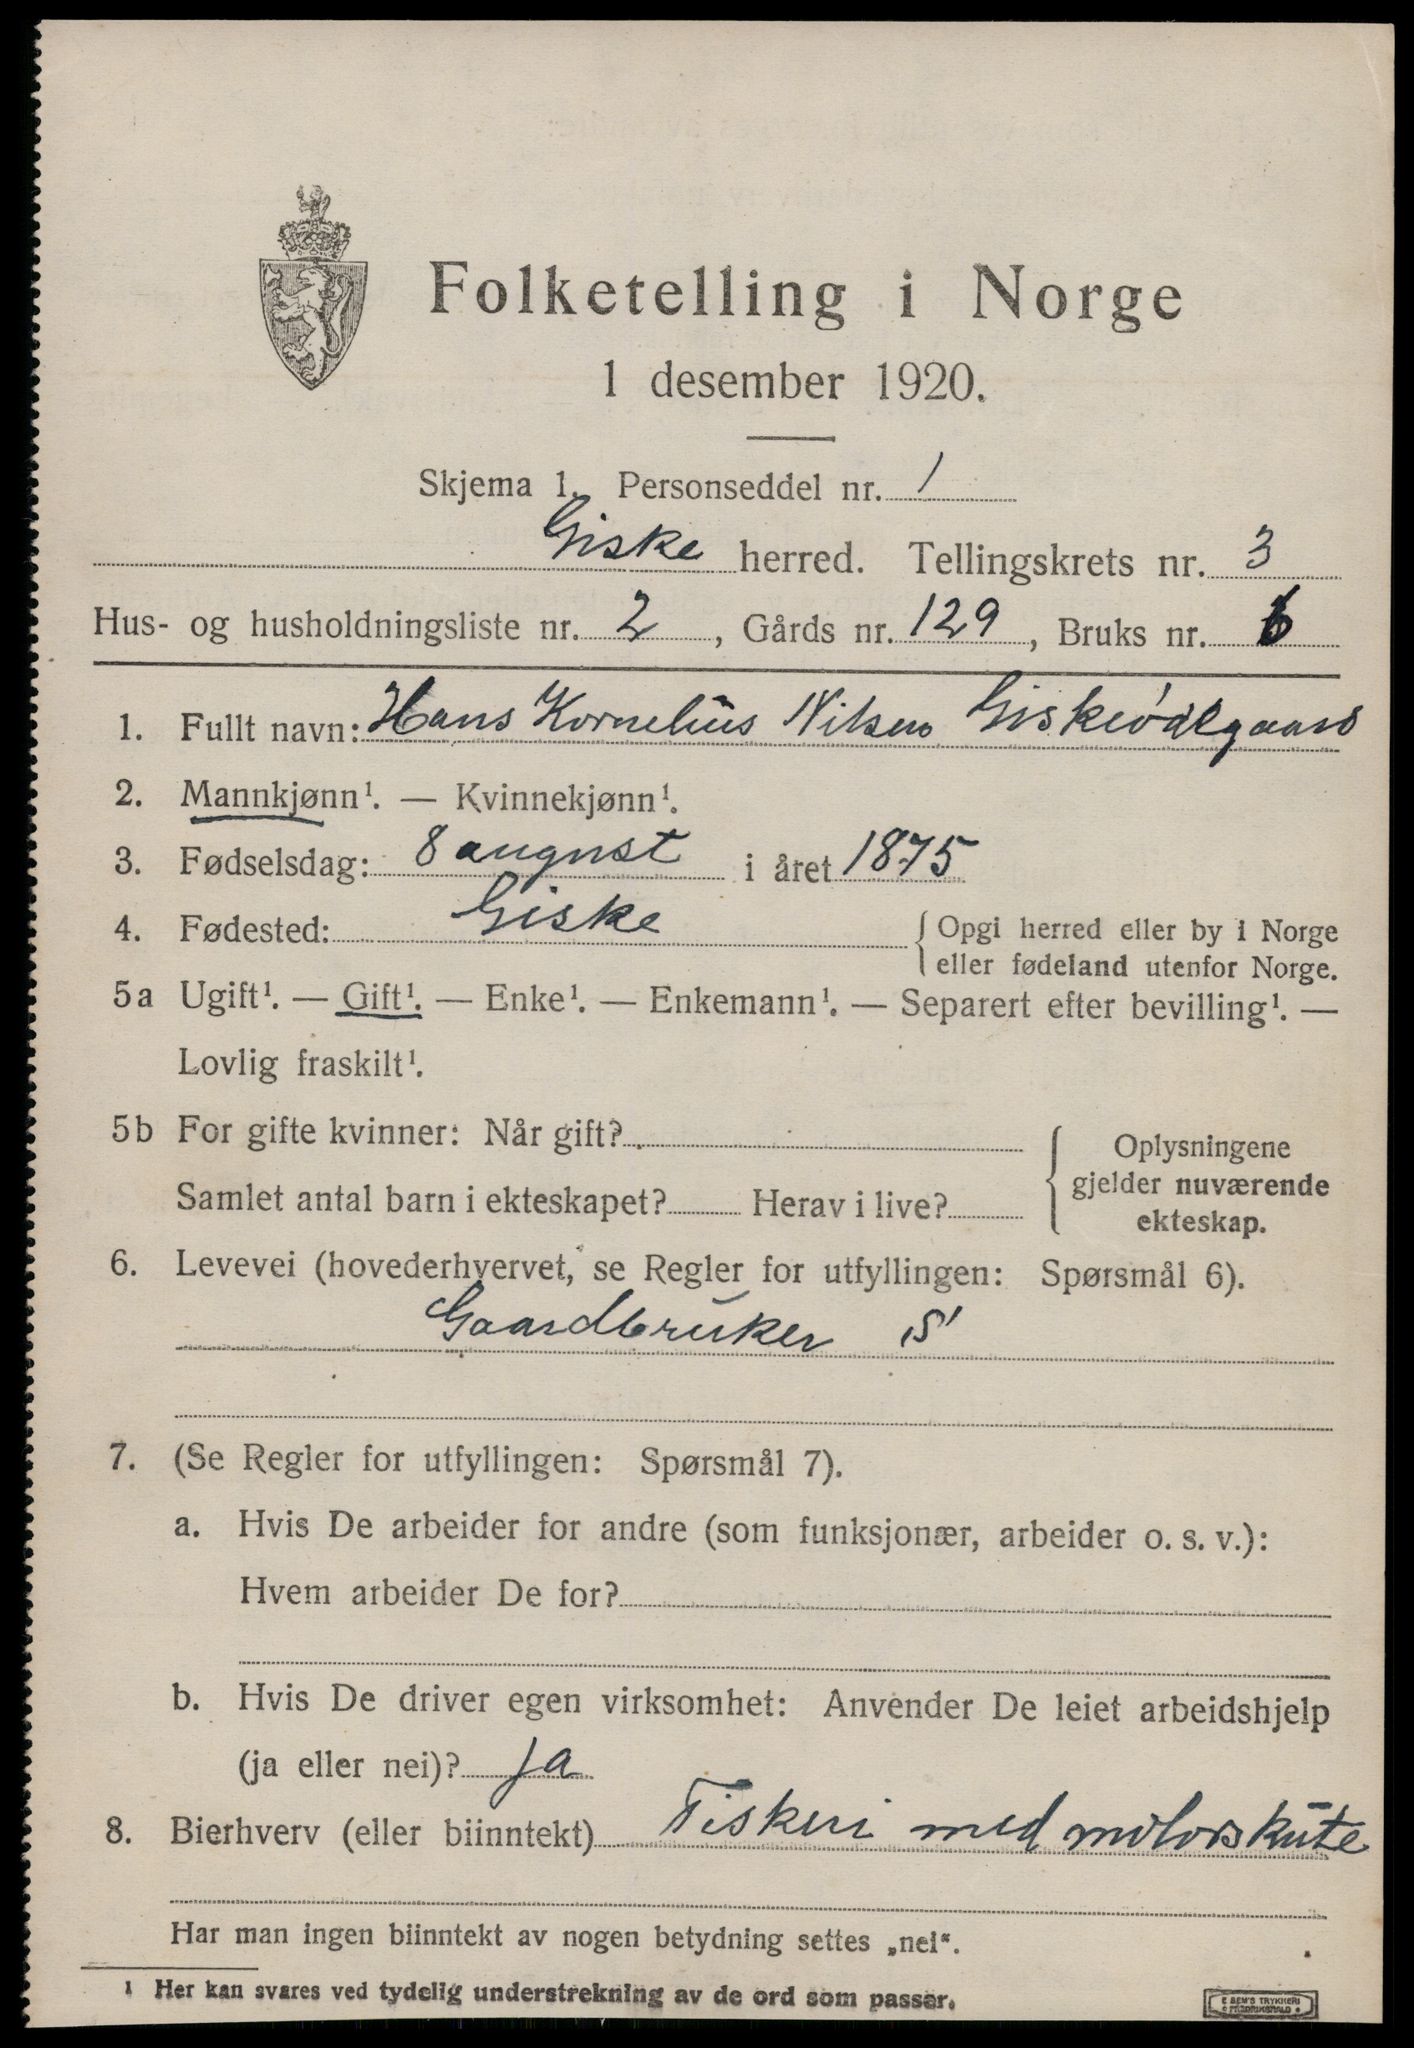 Folketelling i Norge
1 desember 1920.
Skjema 1. Personseddel nr. 1
Giske herred. Tellingskrets nr. 3
Hus- og husholdningsliste nr. 2, Gårds nr. 129, Bruks nr. 6
1. Fullt navn: Hans Kornelius Nilsen Giskeødegaard
2. Mannkjønn¹. — Kvinnekjønn¹.
3. Fødselsdag: 8 august i året 1875
4. Fødested: Giske { Opgi herred eller by i Norge
eller fødeland utenfor Norge.
5a Ugift¹. — Gift¹. — Enke¹. — Enkemann¹. — Separert efter bevilling¹. —
Lovlig fraskilt¹.
5b For gifte kvinner: Når gift?
Samlet antal barn i ekteskapet? Herav i live?
{ Oplysningene
gjelder nuværende
ekteskap.
6. Levevei (hovederhvervet, se Regler for utfyllingen: Spørsmål 6).
Gaardbruker S
7. (Se Regler for utfyllingen: Spørsmål 7).
a. Hvis De arbeider for andre (som funksjonær, arbeider o. s. v.):
Hvem arbeider De for?
b. Hvis De driver egen virksomhet: Anvender De leiet arbeidshjelp
(ja eller nei)? ja
8. Bierhverv (eller biinntekt) Fiskeri med motorskute
Har man ingen biinntekt av nogen betydning settes „nei“.
1 Her kan svares ved tydelig understrekning av de ord som passer.
E SEM'S TRYKKERI
FREDRIKSHALD